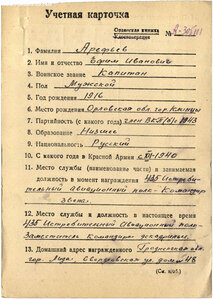 Учетная карточка
Орденская книжка
Удостоверение
№
1. Фамилия Арефьев
2. Имя и отчество Ефим Иванович
3. Воинское звание Капитан
4. Пол Мужской
5. Год рождения 1916
6. Место рождения Орловская обл. гор.
7. Партийность (с какого года) член ВКП(б) 1943
8. Образование Низшее
9. Национальность Русский
10. С какого года в Красной Армии 1940
11. Место службы (наименование части) и занимаемая
должность в момент награждения 435 Истреби-
тельный Авиационный полк-Командир
звена.
12. Место службы и должность в настоящее время
435 Истребительный Авиационный полк-
Заместитель Командира эскадрильи.
13. Домашний адрес награжденного Гродненская обл.
гор. Лида, ул. дом № 48
(См. н/об.)